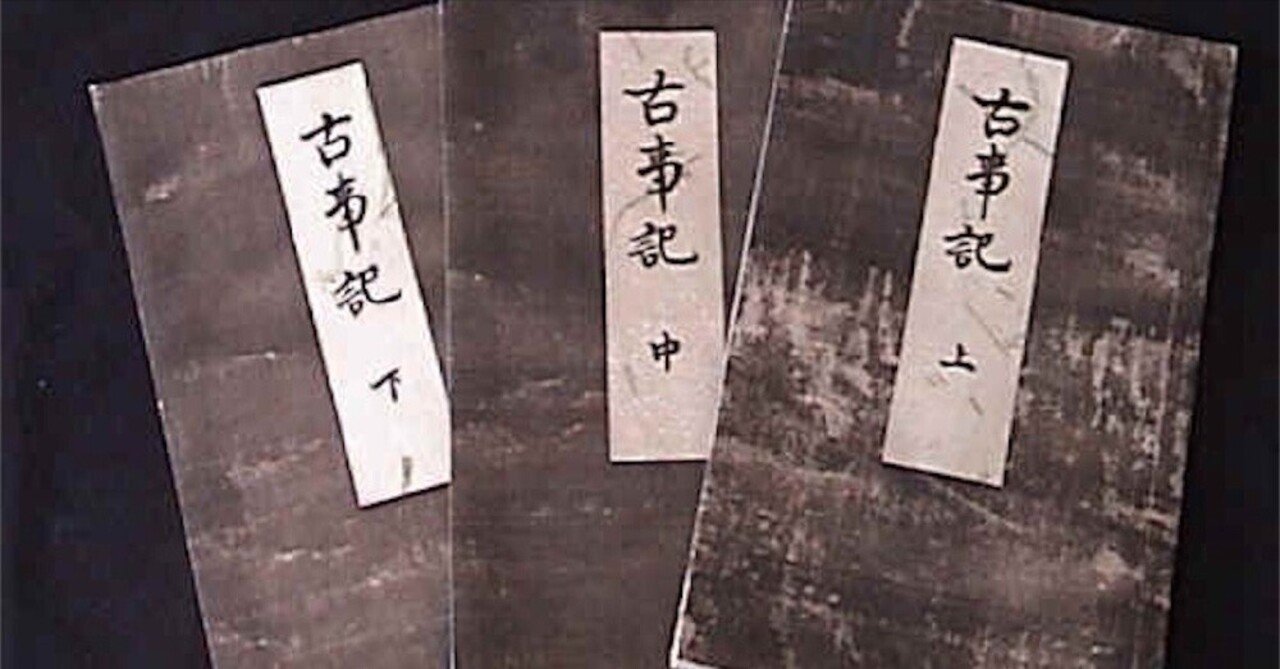 古事記 上
古事記 中
古事記 下